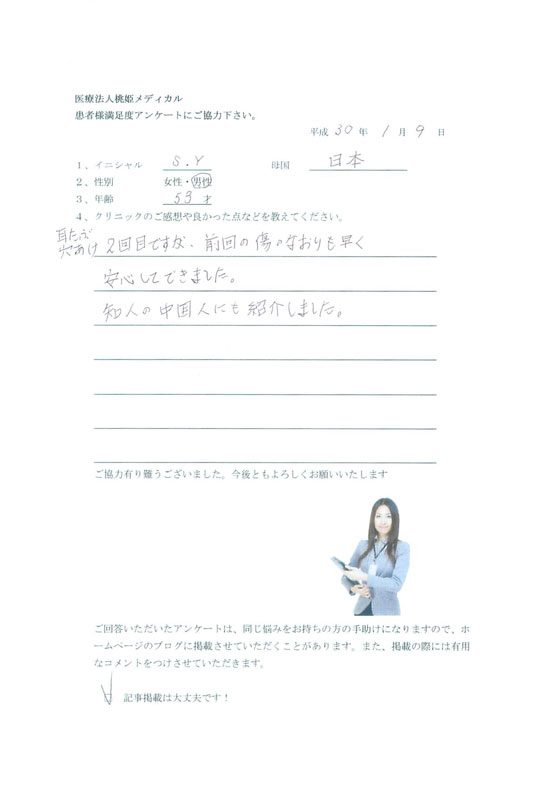 医療法人桃姫メディカル
患者様満足度アンケートにご協力下さい。
平成 30 年 1 月 9 日
1、イニシャル S.Y 母国 日本
2、性別 女性・男性
3、年齢 53 才
4、クリニックのご感想や良かった点などを教えてください。
耳たぶ
穴あけ 2回目ですが、前回の傷のなおりも早く
安心してできました。
知人の中国人にも紹介しました。
ご協力有り難うございました。今後ともよろしくお願いいたします
ご回答いただいたアンケートは、同じ悩みをお持ちの方の手助けになりますので、ホ
ームページのブログに掲載させていただくことがあります。また、掲載の際には有用
なコメントをつけさせていただきます。
□ 記事掲載は大丈夫です！